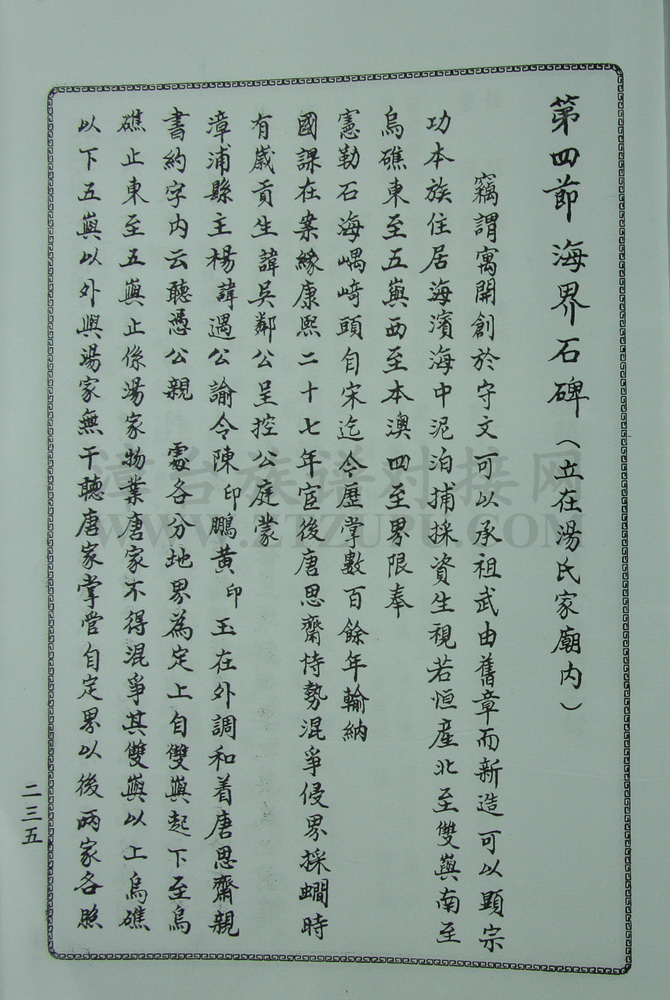 第四節 海界石碑（立在湯氏家廟内）
竊謂寓開創於守文可以承祖武由舊章而新造可以顯宗
功本族住居海濱海中泥泊捕採資生視若恒産北至雙㠘南至
烏礁東至五㠘西至本澳四至界限奉
憲勒石海嵎崎頭自宋迄今歷掌數百餘年輸納
國課在案緣康熙二十七年宦後唐思齋恃勢混爭侵界採蠘時
有歲貢生諱吴鄰公呈控公庭蒙
漳浦縣主楊諱遇公諭令陳印鵬黄印玉在外調和着唐思齋親
書約字内云聽憑公親 處各分地界為定上自雙㠘起下至烏
礁止東至五㠘止係湯家物業唐家不得混爭其雙㠘以上烏礁
以下五㠘以外與湯家無干聽唐家掌管自定界以後两家各照
二三五
漳台族譜对接网
WWW.ZTZUPU.COM